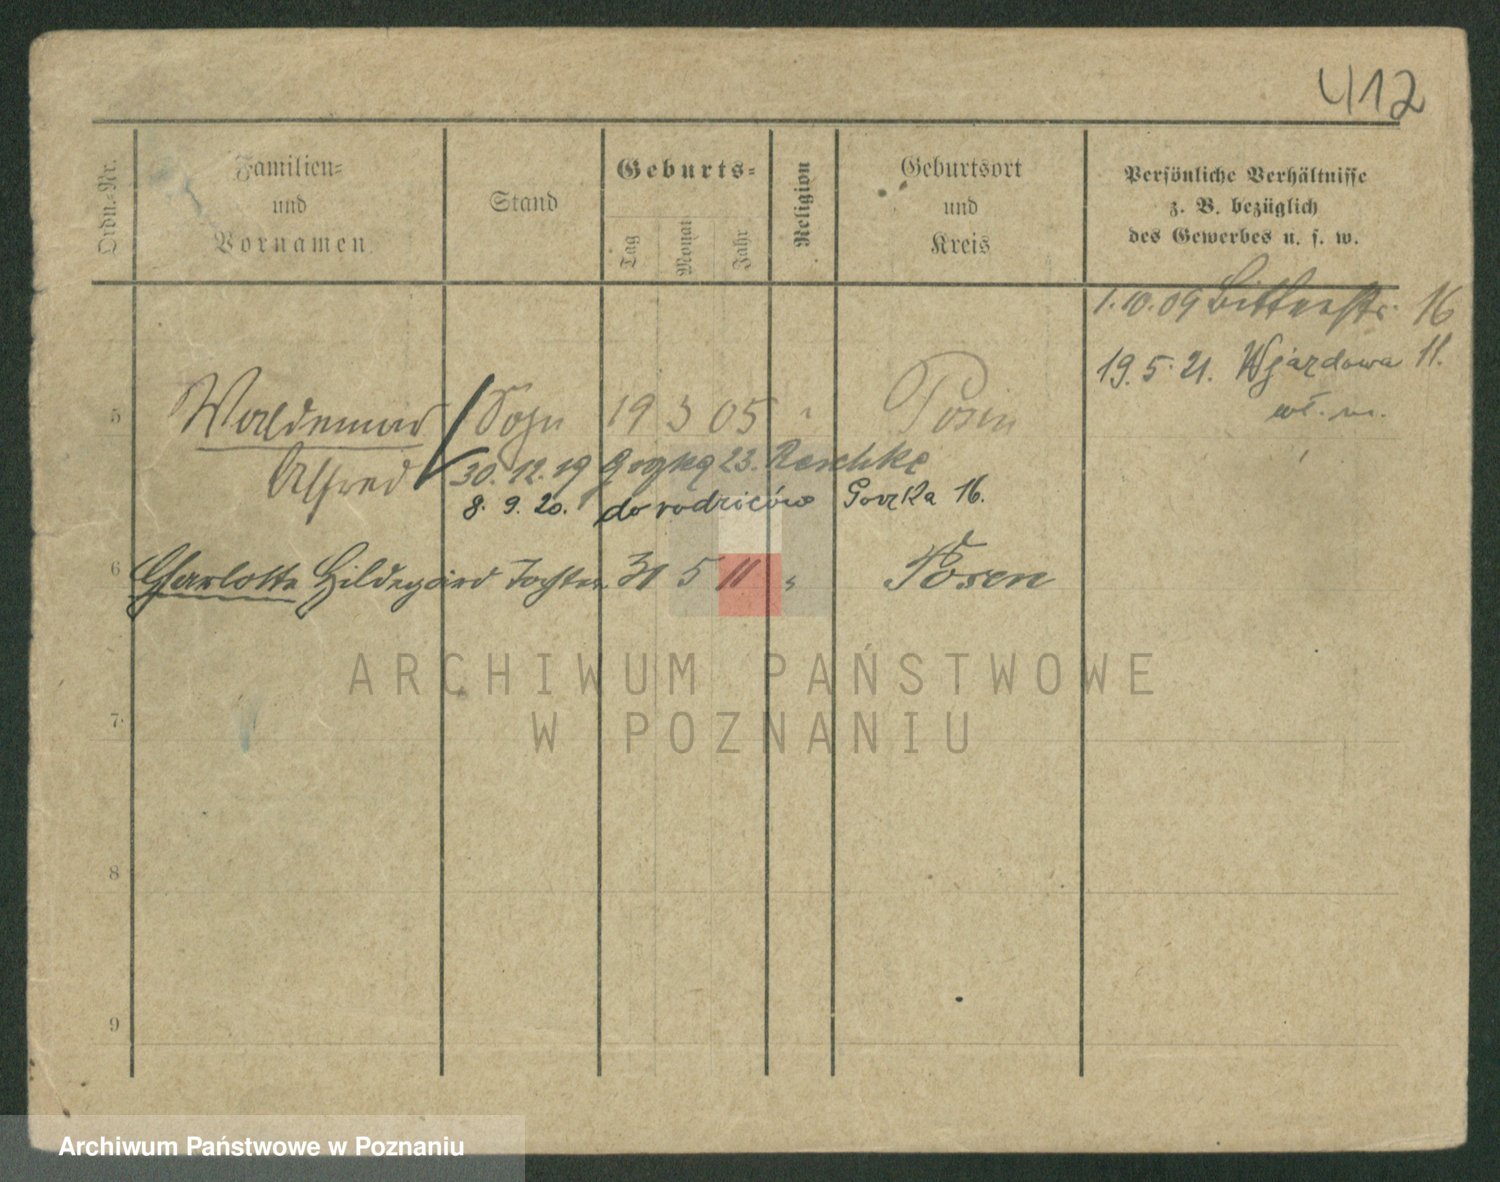 412
Ordn.-Nr.
Familien-
und
Vornamen
Stand
Geburts-
Tag
Monat
Jahr
Religion
Geburtsort
und
Kreis
Persönliche Verhältnisse
z. B. bezüglich
des Gewerbes u. s. w.
1.10.09 Bitterstr. 16
19.5.21. Wjazdowa 11.
wł. m.
5 Waldemar Sohn 19 3 05 " Posen
Alfred 30.12.19 23. Reschke
8. 9. 20. do rodziców Gorzka 16.
6 Charlotte Hildegard Tochter 31 5 11 " Posen
ARCHIWUM PAŃSTWOWE
W POZNANIU
7
8
9
Archiwum Państwowe w Poznaniu